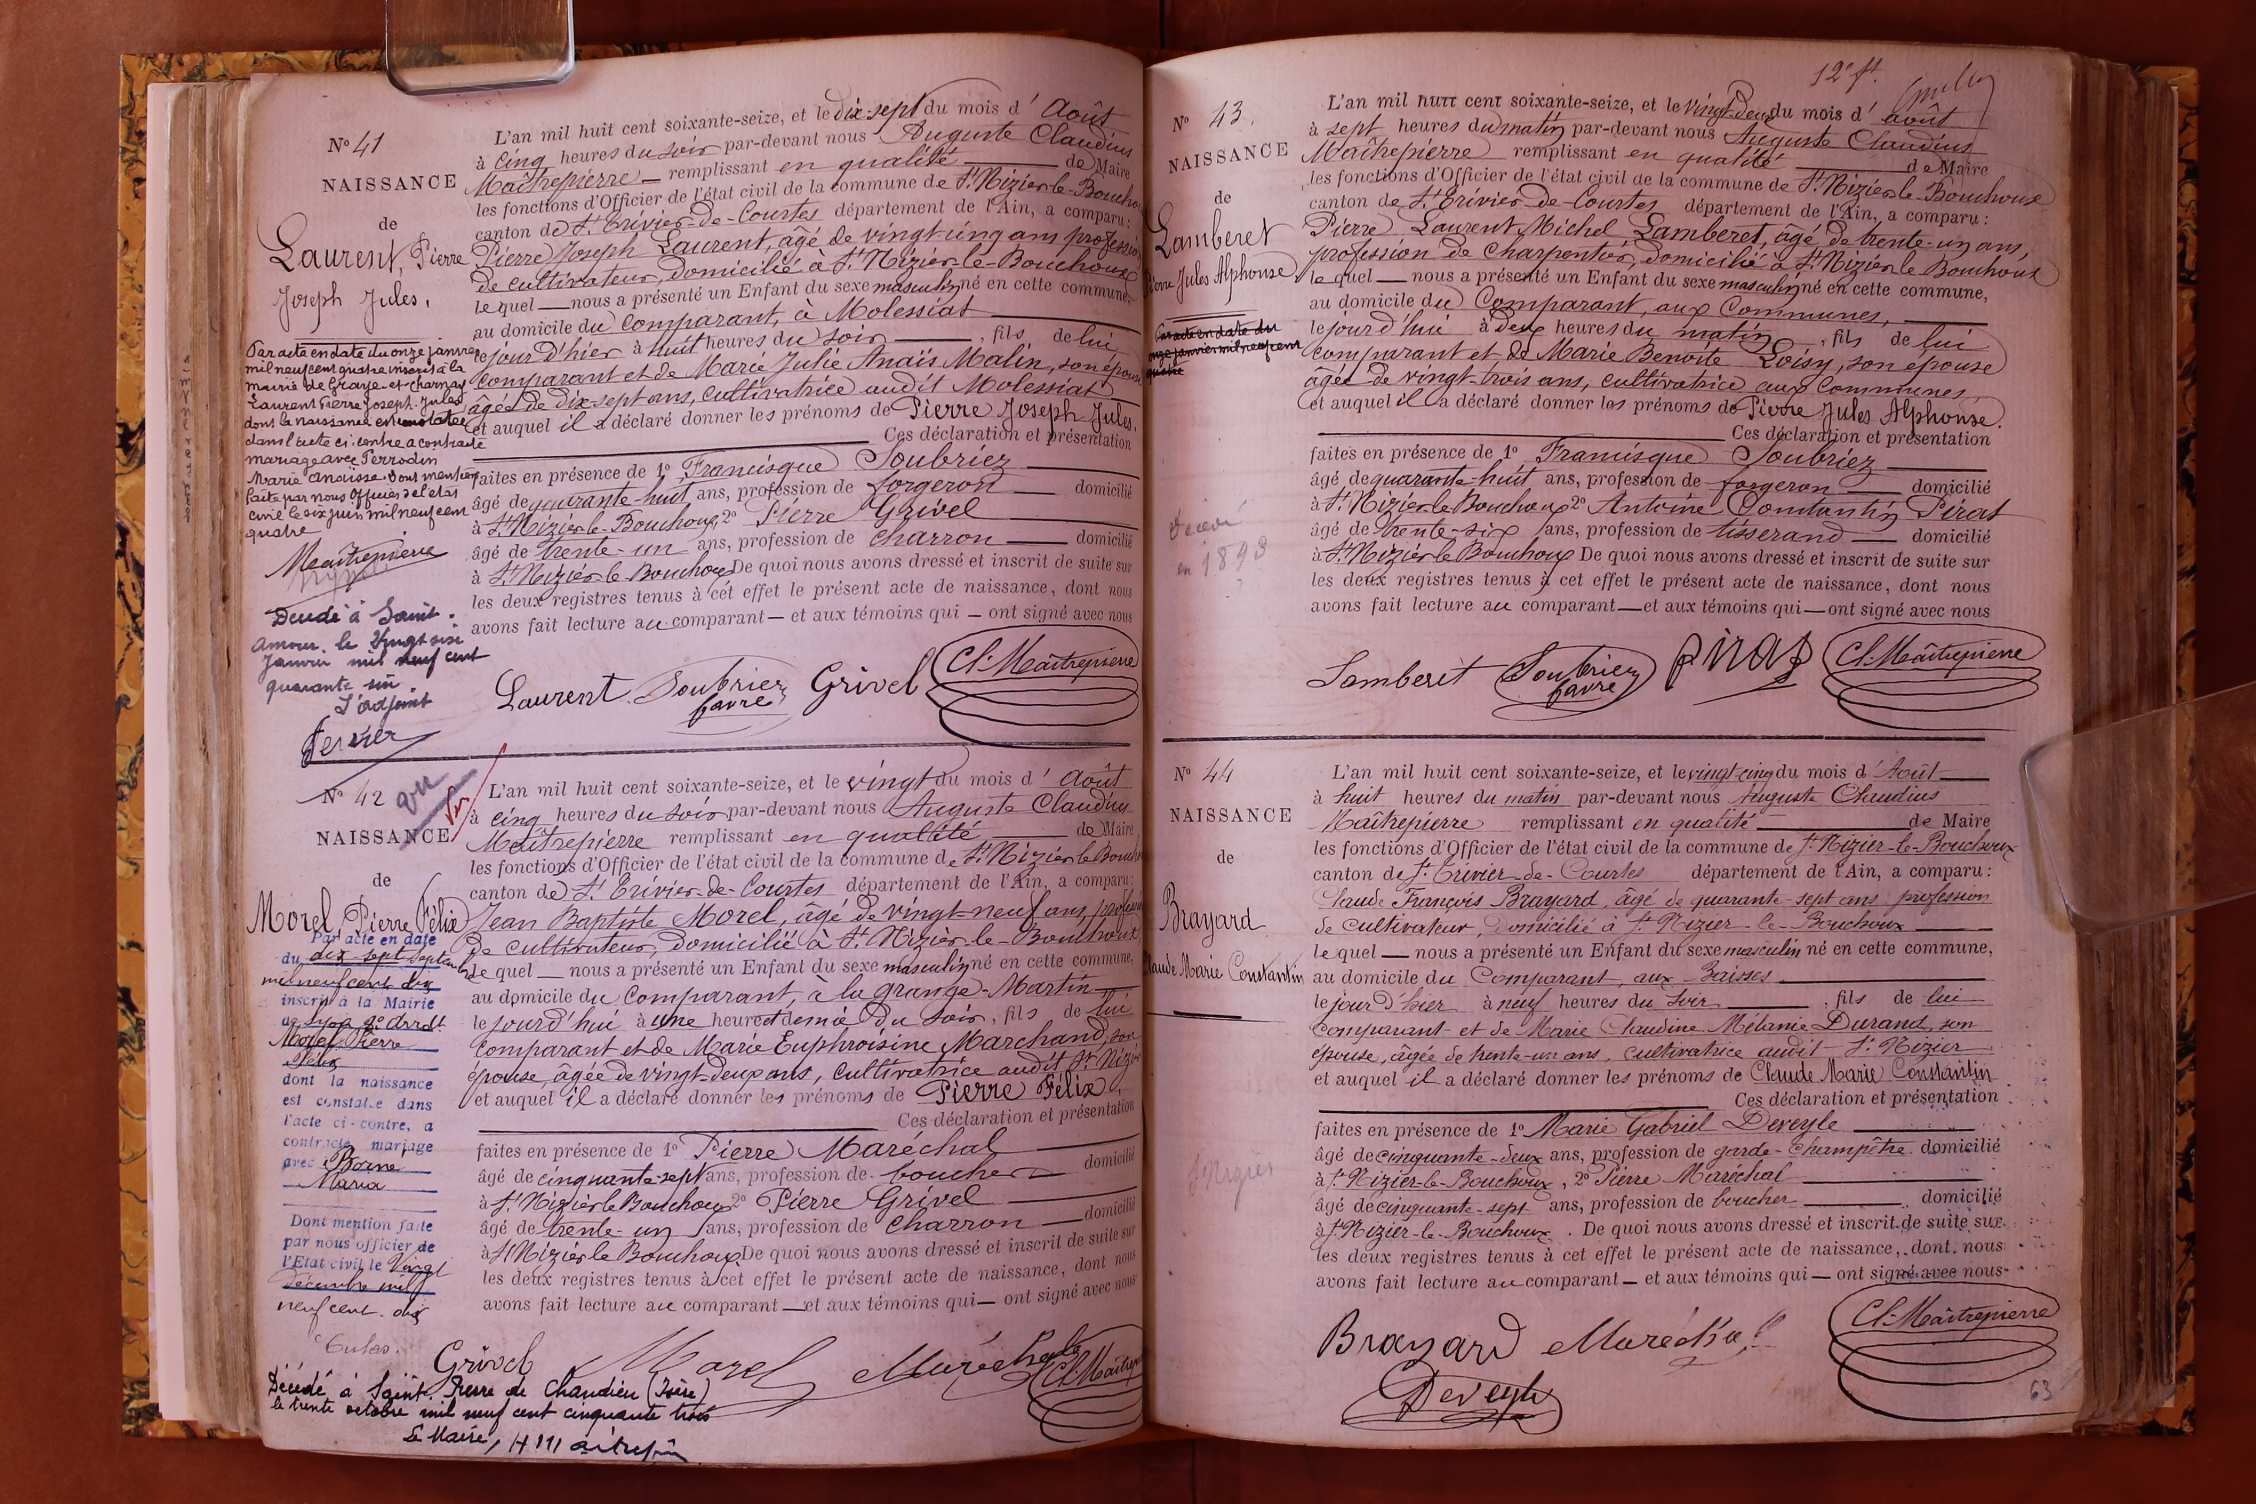 N° 41
NAISSANCE
de
Laurent, Pierre
Joseph Jules.
Par acte en date du onze janvier
mil neuf cent quatre inscrit à la
mairie de Graye-et-Charnay
Laurent Pierre Joseph Jules
dont la naissance est constatée
dans l'acte ci-contre a contracté
mariage avec Perrodin
Marie Anaïsse. Dont mention
faite par nous Officier de l'état
civil le six juin mil neuf cent
quatre
Maîtrepierre
Décédé à Saint-
Amour le Vingt six
Janvier mil neuf cent
quarante six
L'adjoint
L'an mil huit cent soixante-seize, et le dix-sept du mois d'Août
à cinq heures du soir par-devant nous Auguste Claudius
Maîtrepierre remplissant en qualité de Maire
les fonctions d'Officier de l'état civil de la commune de St Nizier-le-Bouchoux
canton de St Trivier-de-Courtes département de l'Ain, a comparu :
Pierre Joseph Laurent, âgé de vingt-cinq ans, profession
de cultivateur, domicilié à St Nizier-le-Bouchoux
lequel nous a présenté un Enfant du sexe masculin né en cette commune,
au domicile du comparant, à Molessiat
le jour d'hier à huit heures du soir, fils de lui
comparant et de Marie Julie Anaïs Malin, son épouse
âgée de dix-sept ans, cultivatrice audit Molessiat
et auquel il a déclaré donner les prénoms de Pierre Joseph Jules.
Ces déclaration et présentation
faites en présence de 1° Francisque Soubriez
âgé de quarante-huit ans, profession de forgeron domicilié
à St Nizier-le-Bouchoux 2° Pierre Grivel
âgé de trente-un ans, profession de charron domicilié
à St Nizier le Bouchoux De quoi nous avons dressé et inscrit de suite sur
les deux registres tenus à cet effet le présent acte de naissance, dont nous
avons fait lecture au comparant et aux témoins qui ont signé avec nous
Laurent Soubriez favre Grivel Cl. Maîtrepierre
N° 42
vu
NAISSANCE
de
Morel, Pierre Félix
Par acte en date
du dix-sept Septembre
mil neuf cent dix
inscrit à la Mairie
de Lyon 2e arrdt
Morel Pierre
Félix
dont la naissance
est constatée dans
l'acte ci-contre, a
contracté mariage
avec Borne
Maria
Dont mention faite
par nous officier de
l'Etat civil le Vingt
décembre mil
neuf cent dix
L'an mil huit cent soixante-seize, et le vingt du mois d'Août
à cinq heures du soir par-devant nous Auguste Claudius
Maîtrepierre remplissant en qualité de Maire
les fonctions d'Officier de l'état civil de la commune de St Nizier le Bouchoux
canton de St Trivier-de-Courtes département de l'Ain, a comparu :
Jean Baptiste Morel, âgé de vingt-neuf ans, profession
de cultivateur, domicilié à St Nizier-le-Bouchoux,
lequel nous a présenté un Enfant du sexe masculin né en cette commune,
au domicile du comparant, à la grange-Martin
le jourd'hui à une heure et demie du soir, fils de lui
comparant et de Marie Euphroisine Marchand, son
épouse, âgée de vingt-deux ans, cultivatrice audit St Nizier
et auquel il a déclaré donner les prénoms de Pierre Félix,
Ces déclaration et présentation
faites en présence de 1° Pierre Maréchal
âgé de cinquante-sept ans, profession de boucher domicilié
à St Nizier le Bouchoux 2° Pierre Grivel
âgé de trente-un ans, profession de charron domicilié
à St Nizier le Bouchoux De quoi nous avons dressé et inscrit de suite sur
les deux registres tenus à cet effet le présent acte de naissance, dont nous
avons fait lecture au comparant et aux témoins qui ont signé avec nous
Grivel Morel Maréchal Cl. Maîtrep
Décédé à Saint-Pierre de Chandieu (Isère)
le trente octobre mil neuf cent cinquante trois
Le Maire,
12e ft.
N° 43.
NAISSANCE
de
Lamberet
Pierre Jules Alphonse
Par acte en date du
onze janvier mil neuf cent
quatre
Décédé
en 1893
?
L'an mil huit cent soixante-seize, et le vingt-deux du mois d'août
à sept heures du matin par-devant nous Auguste Claudius
Maîtrepierre remplissant en qualité de Maire
les fonctions d'Officier de l'état civil de la commune de St Nizier-le-Bouchoux
canton de St Trivier-de-Courtes département de l'Ain, a comparu :
Pierre Laurent Michel Lamberet, âgé de trente-un ans,
profession de charpentier, domicilié à St Nizier le Bouchoux
lequel nous a présenté un Enfant du sexe masculin né en cette commune,
au domicile du Comparant, aux Communes,
le jourd'hui à deux heures du matin, fils de lui
comparant et de Marie Benoite Loisy, son épouse
âgée de vingt-trois ans, cultivatrice aux Communes,
et auquel il a déclaré donner les prénoms de Pierre Jules Alphonse.
Ces déclaration et présentation
faites en présence de 1° Francisque Soubriez
âgé de quarante-huit ans, profession de forgeron domicilié
à St Nizier le Bouchoux 2° Antoine Constantin Pirat
âgé de trente-six ans, profession de tisserand domicilié
à St Nizier le Bouchoux De quoi nous avons dressé et inscrit de suite sur
les deux registres tenus à cet effet le présent acte de naissance, dont nous
avons fait lecture au comparant et aux témoins qui ont signé avec nous
Lamberet Soubriez favre Pirat Cl. Maîtrepierre
N° 44
NAISSANCE
de
Brayard
Claude Marie Constantin
St Nizier
L'an mil huit cent soixante-seize, et le vingt-cinq du mois d'Août
à huit heures du matin par-devant nous Auguste Claudius
Maîtrepierre remplissant en qualité de Maire
les fonctions d'Officier de l'état civil de la commune de St Nizier-le-Bouchoux
canton de St Trivier-de-Courtes département de l'Ain, a comparu :
Claude François Brayard, âgé de quarante-sept ans profession
de cultivateur, domicilié à St Nizier-le-Bouchoux
lequel nous a présenté un Enfant du sexe masculin né en cette commune,
au domicile du Comparant, aux Baisses
le jour d'hier à neuf heures du soir, fils de lui
comparant et de Marie Claudine Mélanie Durand, son
épouse, âgée de trente-un ans, cultivatrice audit St Nizier
et auquel il a déclaré donner les prénoms de Claude Marie Constantin
Ces déclaration et présentation
faites en présence de 1° Marie Gabriel Deveyle
âgé de cinquante-deux ans, profession de garde-champêtre domicilié
à St Nizier-le-Bouchoux, 2° Pierre Maréchal
âgé de cinquante-sept ans, profession de boucher domicilié
à St Nizier-le-Bouchoux. De quoi nous avons dressé et inscrit de suite sur
les deux registres tenus à cet effet le présent acte de naissance, dont nous
avons fait lecture au comparant et aux témoins qui ont signé avec nous
Brayard Maréchal Cl. Maîtrepierre
Deveyle
63